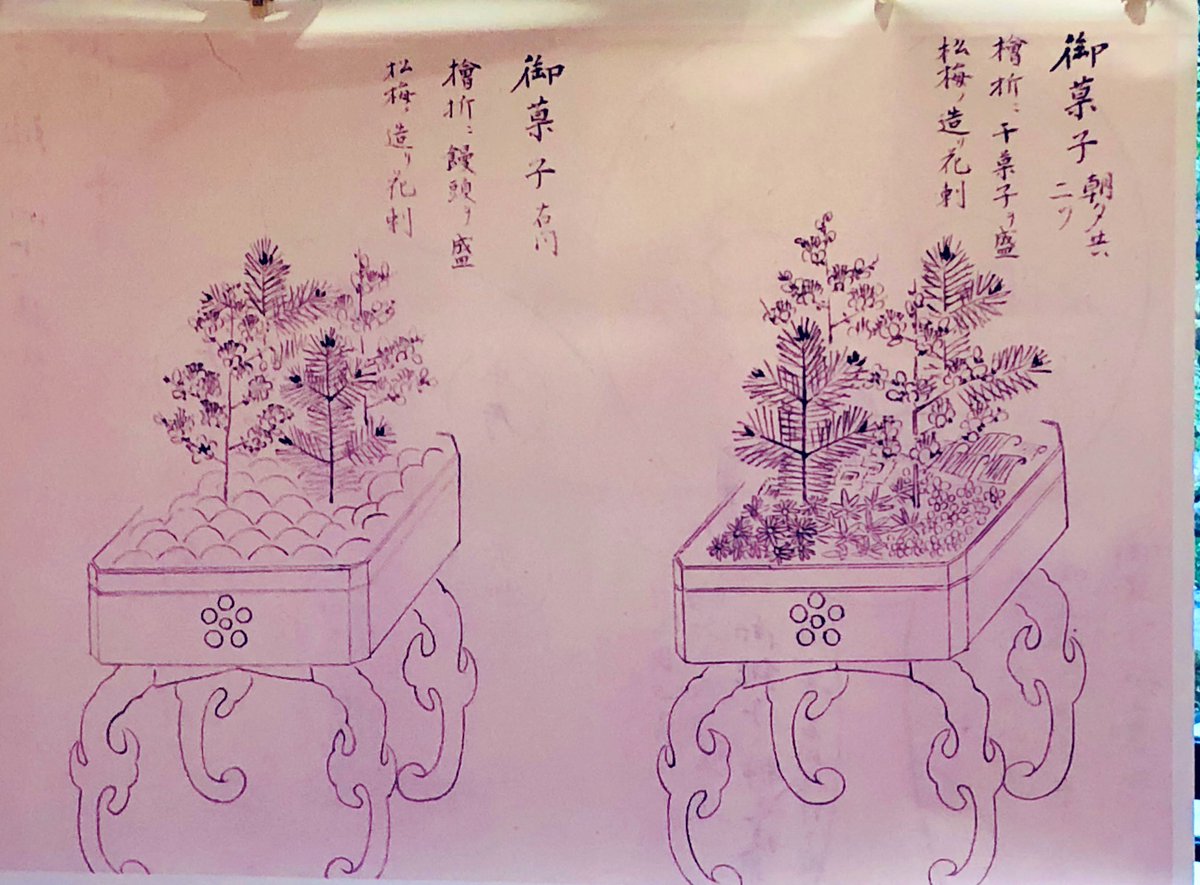 御菓子 朝夕共
二ツ
檜折ニ干菓子ヲ盛
松梅ノ造リ花刺
御菓子 右同
檜折ニ饅頭ヲ盛
松梅ノ造リ花刺